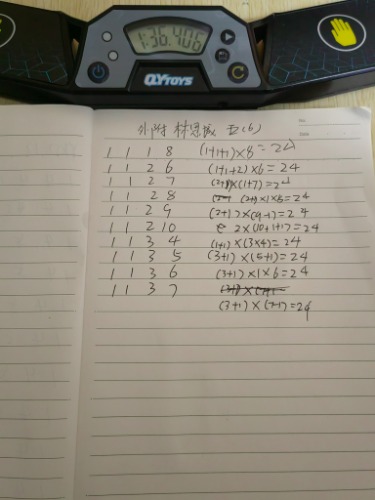 1:36.406
QY TOYS
No.
Date
外附 林思成 五(6)
1 1 1 8 (1+1+1)×8=24
1 1 2 6 (1+1+2)×6=24
1 1 2 7 (2+1)×(1+7)=24
1 1 2 8 (2+1)×1×8=24
1 1 2 9 (2+1)×(9-1)=24
1 1 2 10 2×(10+1+1)=24
1 1 3 4 (1+1)×(3×4)=24
1 1 3 5 (3+1)×(5+1)=24
1 1 3 6 (3+1)×1×6=24
1 1 3 7
(3+1)×(7-1)=24